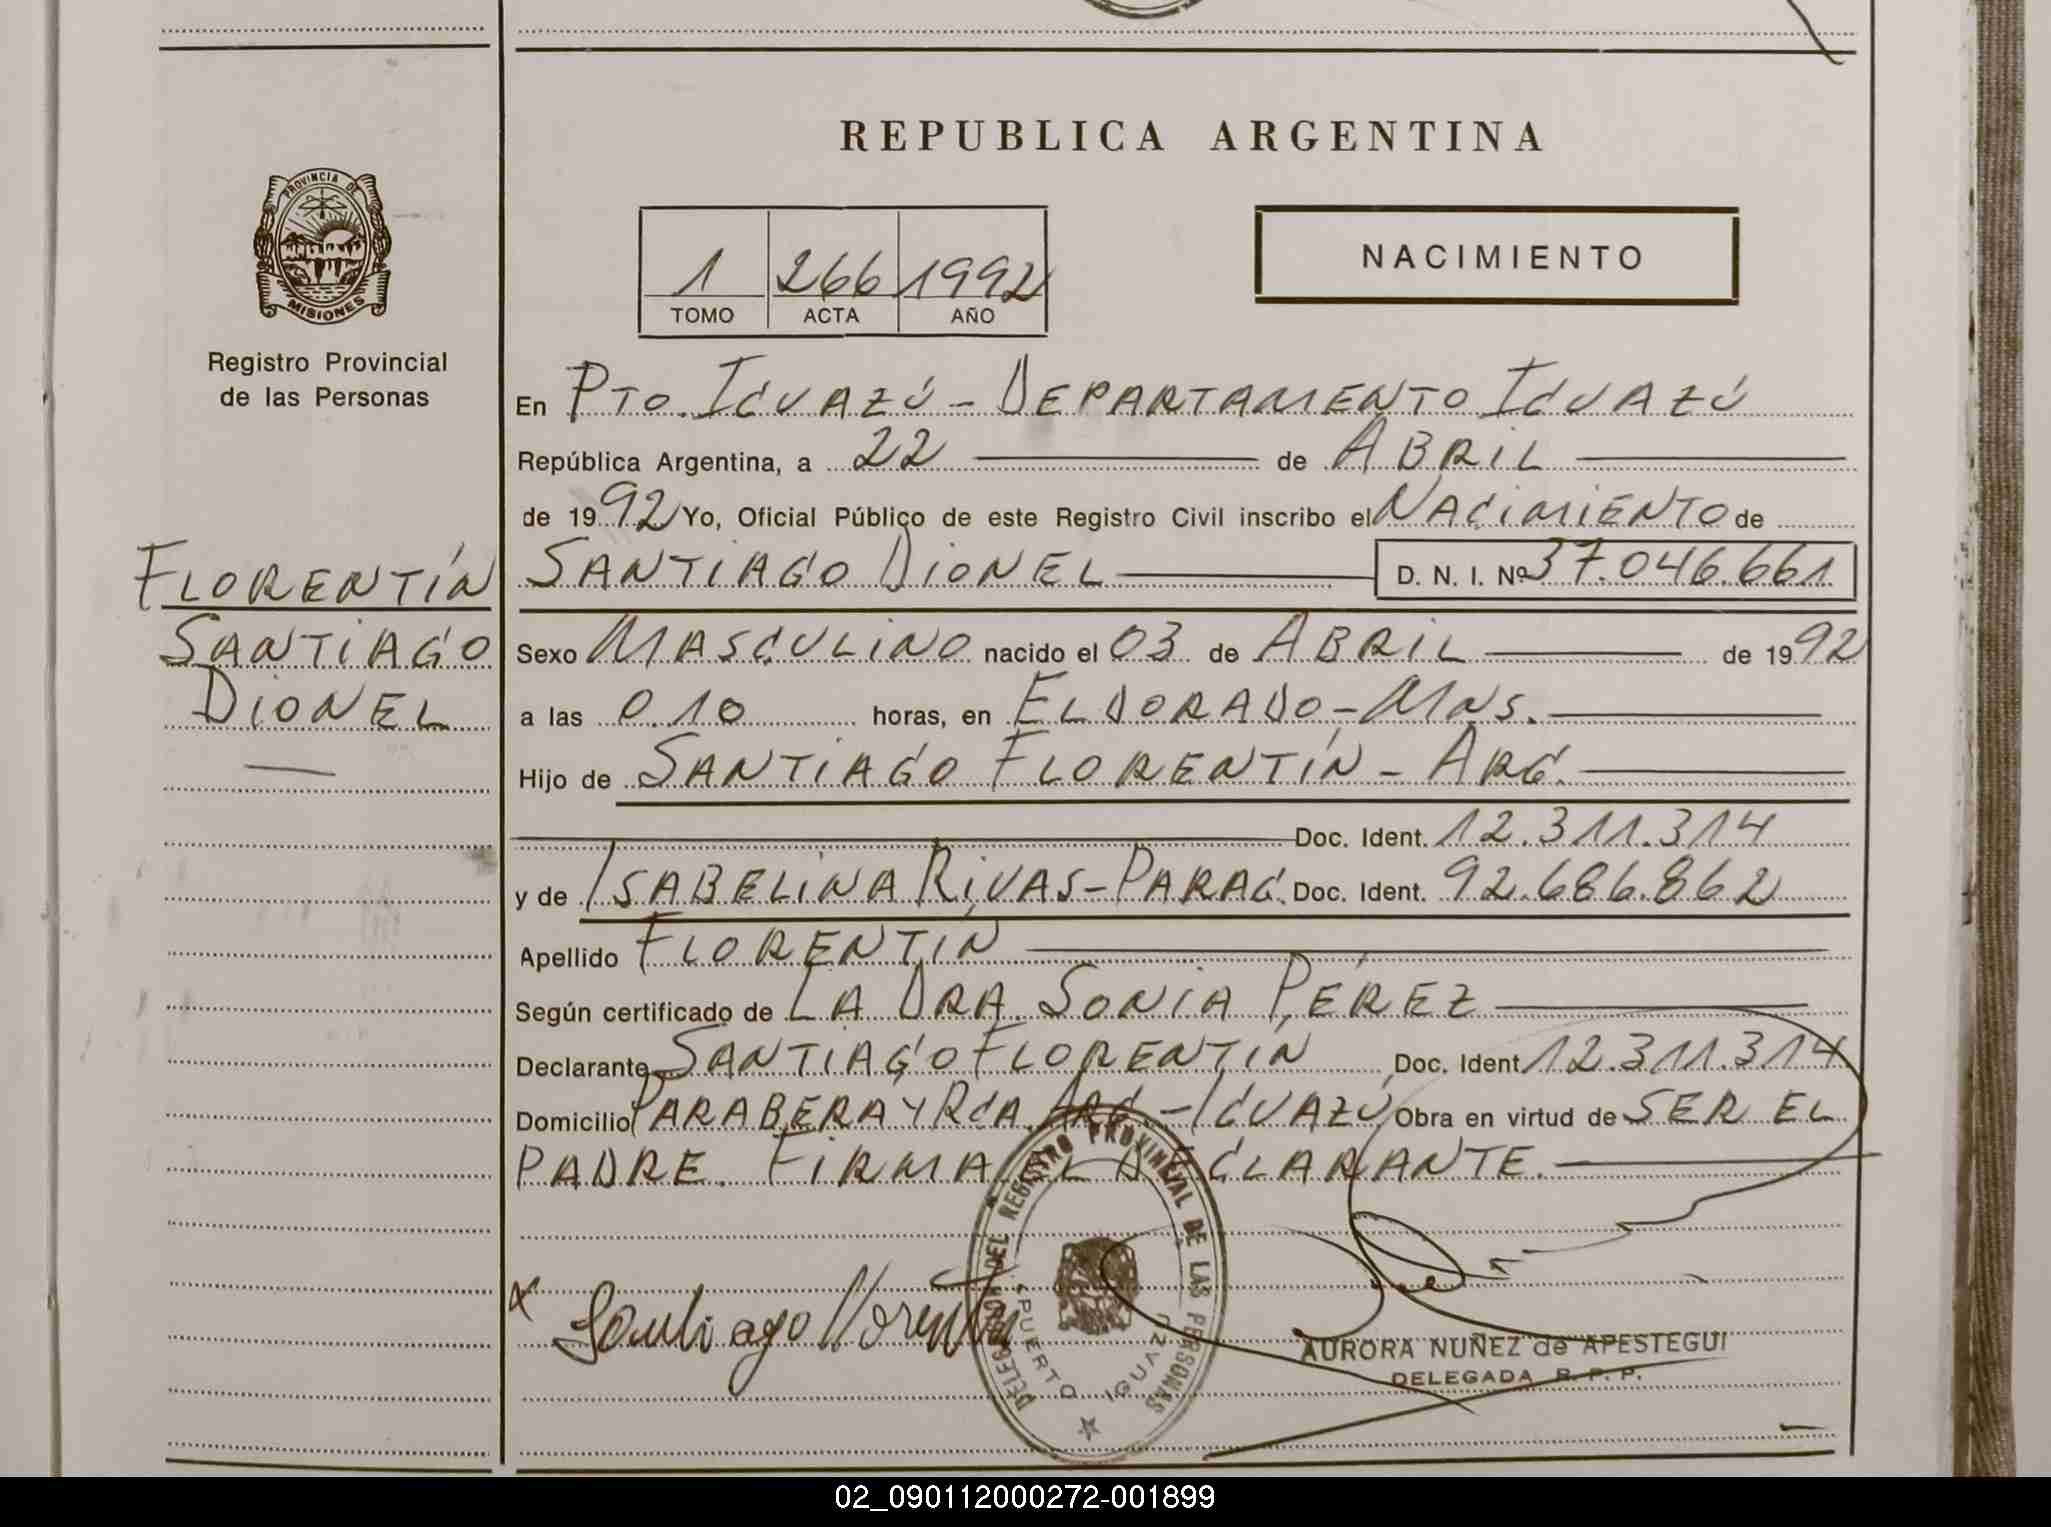 REPUBLICA ARGENTINA
PROVINCIA DE
MISIONES
Registro Provincial
de las Personas
1 266 1992
TOMO ACTA AÑO
NACIMIENTO
En PTO. IGUAZÚ - DEPARTAMENTO IGUAZÚ
República Argentina, a 22 de ABRIL
de 1992 Yo, Oficial Público de este Registro Civil inscribo el NACIMIENTO de
FLORENTÍN
SANTIAGO
DIONEL
SANTIAGO DIONEL D. N. I. Nº 37.046.661
Sexo MASCULINO nacido el 03 de ABRIL de 1992
a las 0.10 horas, en ELDORADO - MNS.
Hijo de SANTIAGO FLORENTÍN - ARG.
Doc. Ident. 12.311.314
y de ISABELINA RIVAS - PARAG. Doc. Ident. 92.686.862
Apellido FLORENTÍN
Según certificado de LA DRA. SONIA PÉREZ
Declarante SANTIAGO FLORENTÍN Doc. Ident. 12.311.314
Domicilio PARABERA Y RCA. ARG - IGUAZÚ Obra en virtud de SER EL
PADRE. FIRMA EL DECLARANTE.
x Santiago Florentin
DELEGACION DEL REGISTRO PROVINCIAL DE LAS PERSONAS
PUERTO IGUAZU
AURORA NUÑEZ de APESTEGUI
DELEGADA R. P. P.
02_090112000272-001899